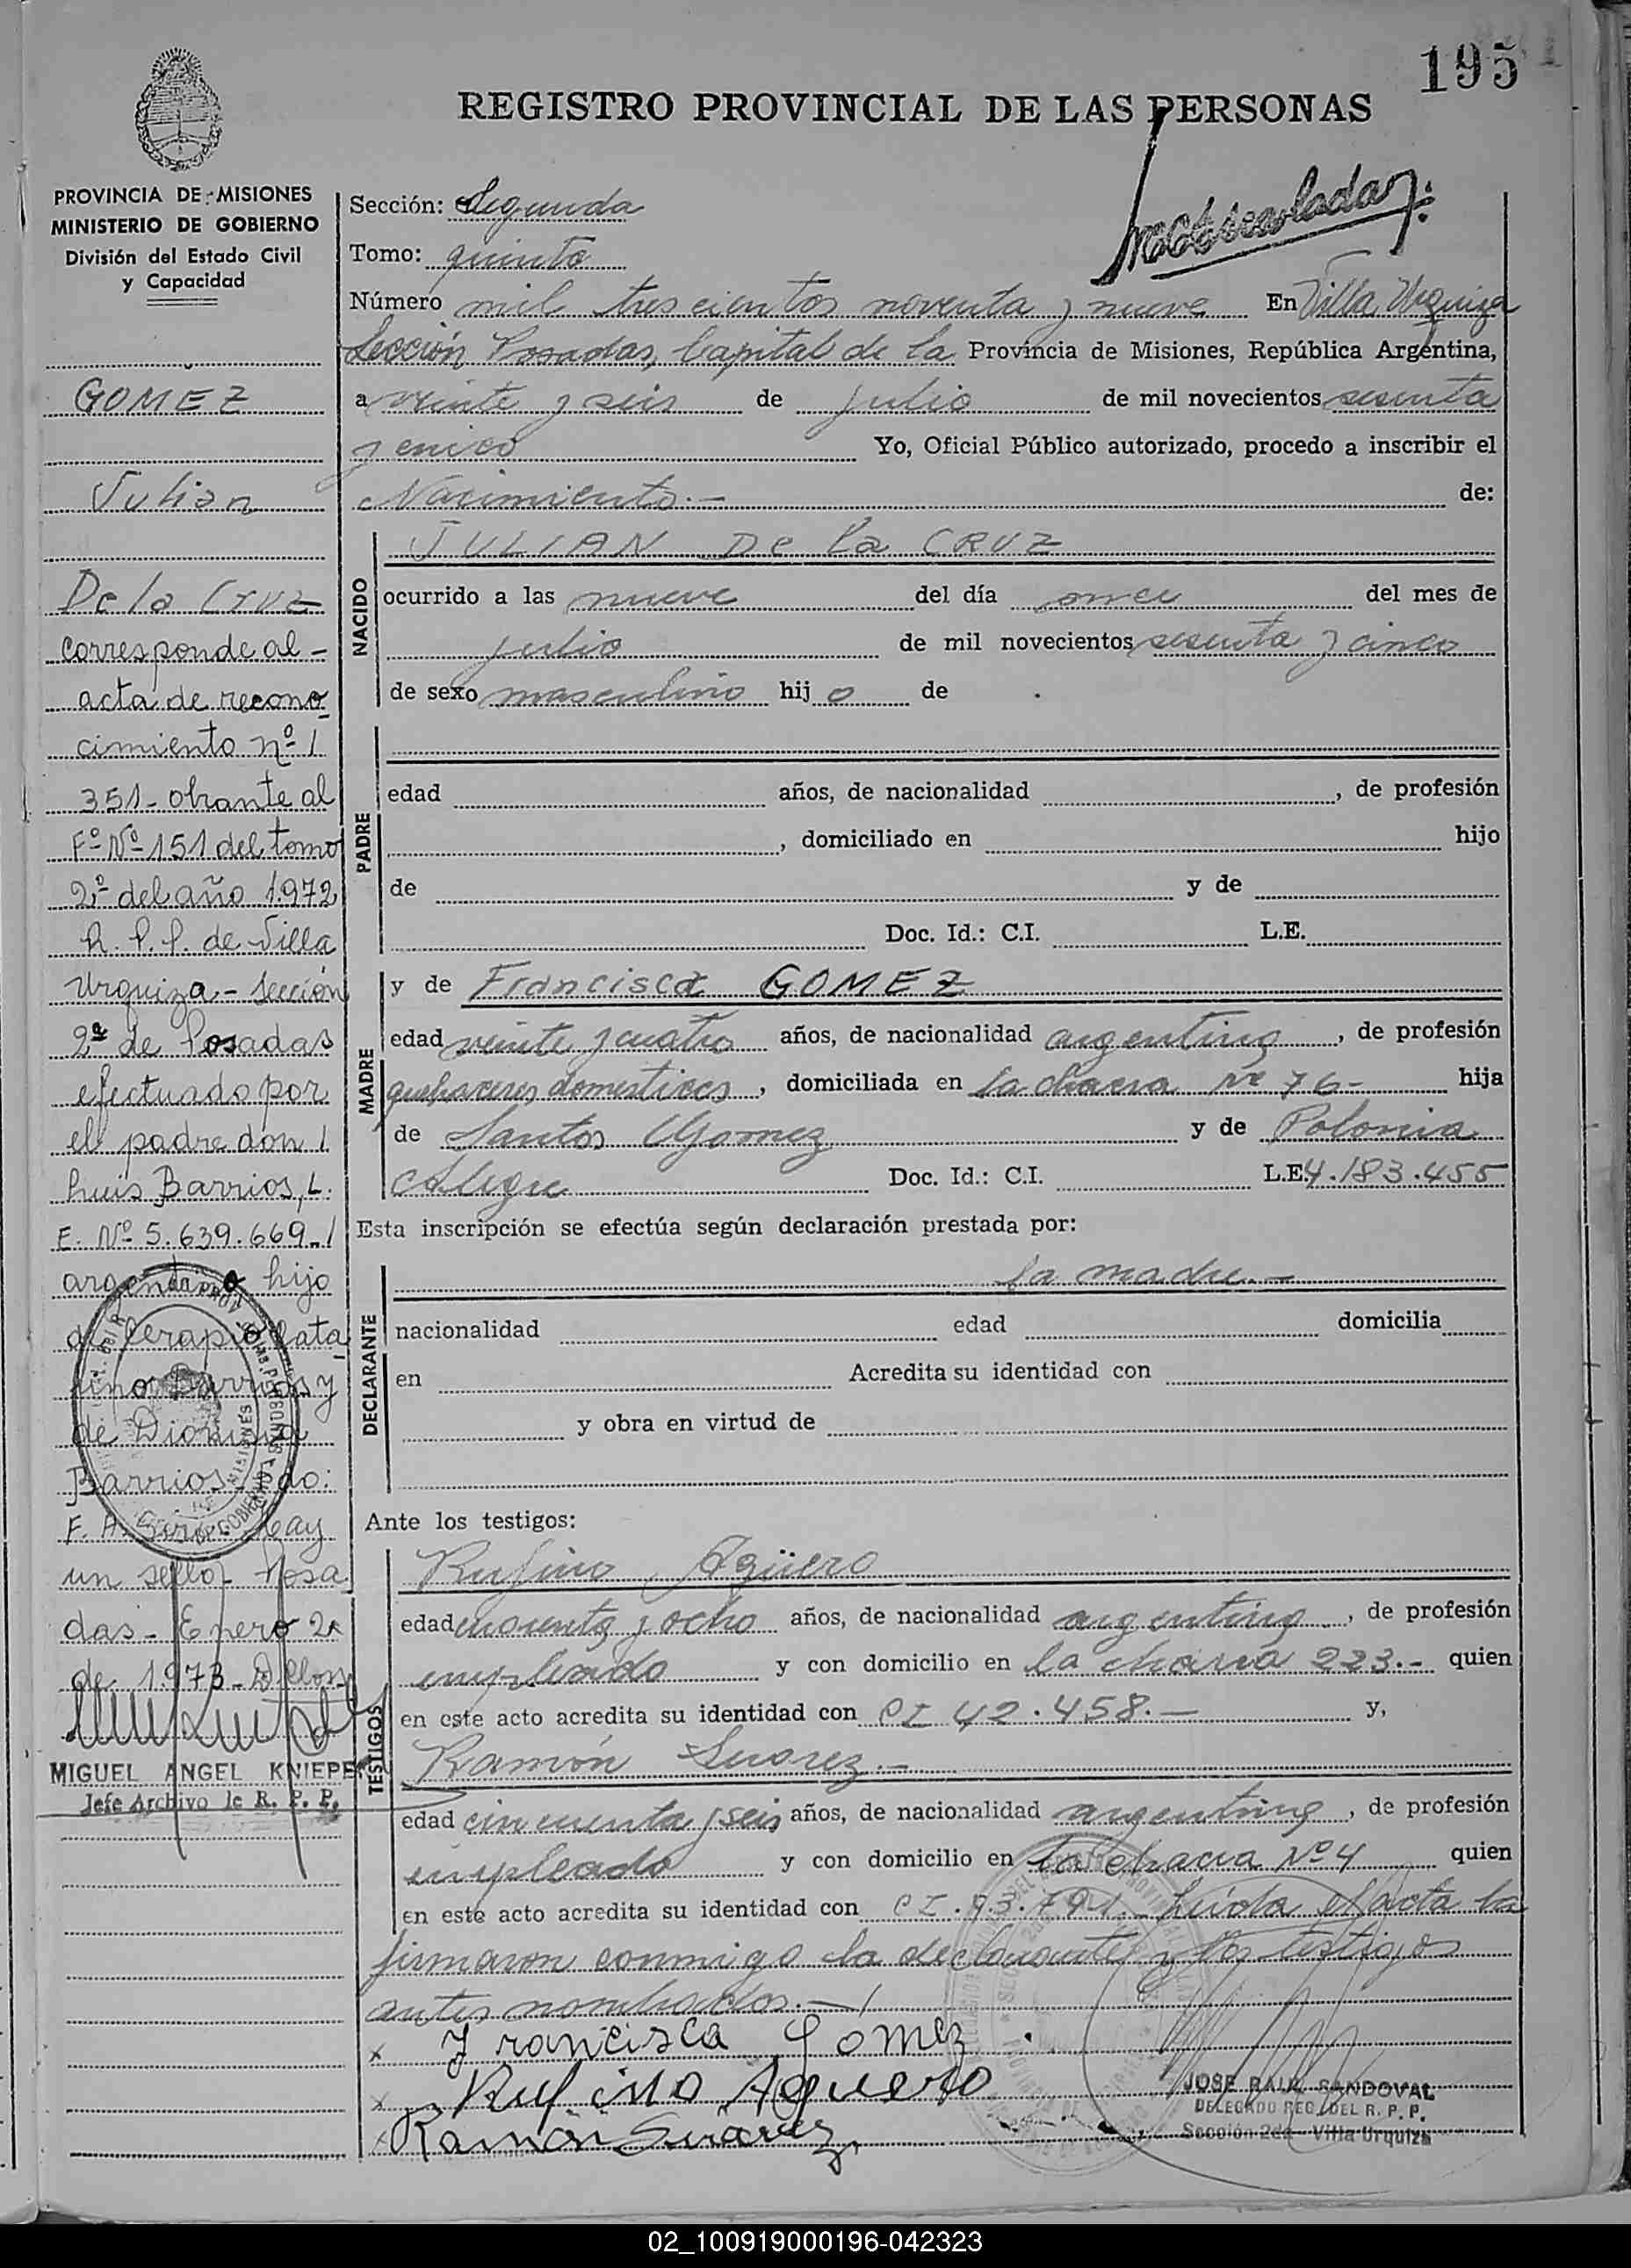 195
REGISTRO PROVINCIAL DE LAS PERSONAS
PROVINCIA DE MISIONES
MINISTERIO DE GOBIERNO
División del Estado Civil
y Capacidad
GOMEZ
Julian
De la Cruz
corresponde al -
acta de recono
cimiento nº 1
351 - obrante al
Fº Nº 151 del tomo
2º del año 1.972
R. P. P. de Villa
Urquiza - Sección
2ª de Posadas
efectuado por
el padre don
Luis Barrios, L.
E. Nº 5.639.669 -
argentino hijo
de Cerapio Cata
lino Barrios y
de Dionisia
Barrios do:
F. A. hay
un sello - Posa
das - Enero 2
de 1.973 -
MIGUEL ANGEL KNIEPER
Jefe Archivo de R. P. P.
Matriculado
Sección: Segunda
Tomo: quinto
Número mil trescientos noventa y nueve En Villa Urquiza
Sección Posadas, Capital de la Provincia de Misiones, República Argentina,
a veinte y seis de julio de mil novecientos sesenta
y cinco Yo, Oficial Público autorizado, procedo a inscribir el
Nacimiento.- de:
NACIDO
JULIAN De La CRUZ
ocurrido a las nueve del día once del mes de
julio de mil novecientos sesenta y cinco
de sexo masculino hijo de
PADRE
edad años, de nacionalidad , de profesión
, domiciliado en hijo
de y de
Doc. Id.: C.I. L.E.
MADRE
y de Francisca GOMEZ
edad veinte y cuatro años, de nacionalidad argentina, de profesión
quehaceres domesticos, domiciliada en la chacra Nº 76- hija
de Santos Gomez y de Polonia
Alegre Doc. Id.: C.I. L.E. 4.183.455
Esta inscripción se efectúa según declaración prestada por:
DECLARANTE
la madre.-
nacionalidad edad domicilia
en Acredita su identidad con
y obra en virtud de
Ante los testigos:
TESTIGOS
Rufino Agüero
edad y ocho años, de nacionalidad argentina, de profesión
empleado y con domicilio en la chacra 223.- quien
en este acto acredita su identidad con CI 42.458.- y,
Ramón Suarez.-
edad cincuenta y seis años, de nacionalidad argentina, de profesión
empleado y con domicilio en la chacra Nº 4 quien
en este acto acredita su identidad con CI. Leída el acta la
firmaron conmigo la declarante y los testigos
antes nombrados.-
x Francisca Gómez
x Rufino Aguero
x Ramón Suárez
JOSE RAUL SANDOVAL
DELEGADO REG. DEL R. P. P.
Sección 2da - Villa Urquiza
02_100919000196-042323